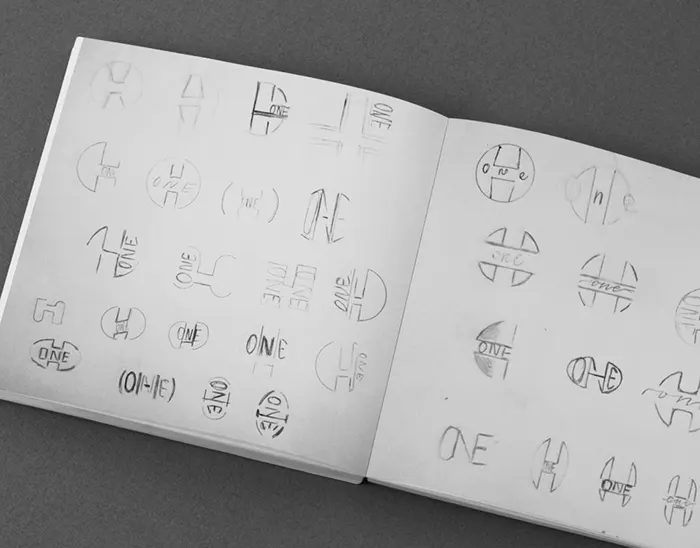 ONE
ONE
ONE
ONE
ONE
ONE
ONE
ONE
ONE
ONE
ONE
ONE
ONE
ONE
ONE
ONE
ONE
ONE
(O|-|E)
ONE
ONE
one
One
one
one
ONE
ONE
one
ONE
ONE
ONE
one